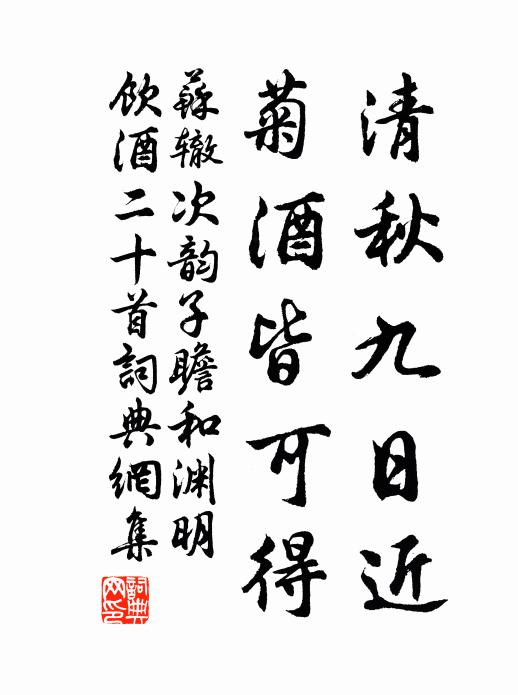 清秋九日近
菊酒皆可得
蘇辙次韵子瞻和渊明
飲酒二十首詞典網集
詞典
网印